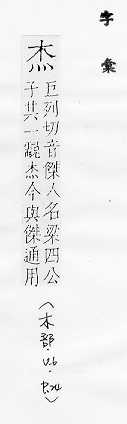 字彙
杰
巨列切音傑人名梁四公
子其一𪒠杰今與傑通用
（木部·